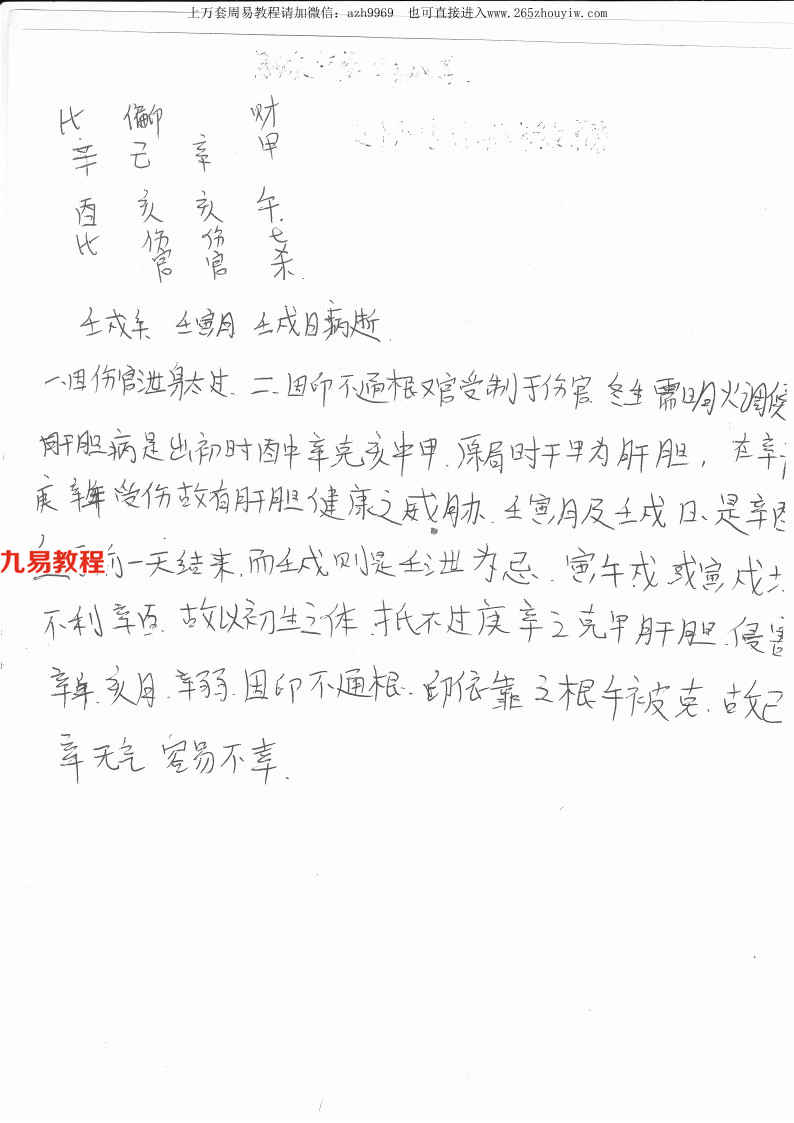 上万套周易教程请加微信：azh9969 也可直接进入www.265zhouyiw.com
比 偏印 财
辛 己 辛 甲
酉 亥 亥 午
比 伤官 伤官 七杀
壬戌年 壬寅月 壬戌日病逝
一、因伤官泄身太过. 二、因印不通根又官受制于伤官 冬生需明火调候
肝胆病是出初时酉中辛克亥中甲. 原局时干甲为肝胆， 在辛
庚辛年受伤故有肝胆健康之威胁. 壬寅月及壬戌日、是辛酉
九易教程 一天结束. 而壬戌则是壬泄为忌. 寅午戌或寅戌
不利辛酉. 故以初生之体. 抵不过庚辛之克甲肝胆. 侵害
辛年. 亥月. 辛弱. 因印不通根. 印依靠之根午被克. 故己
辛无气 容易不幸.